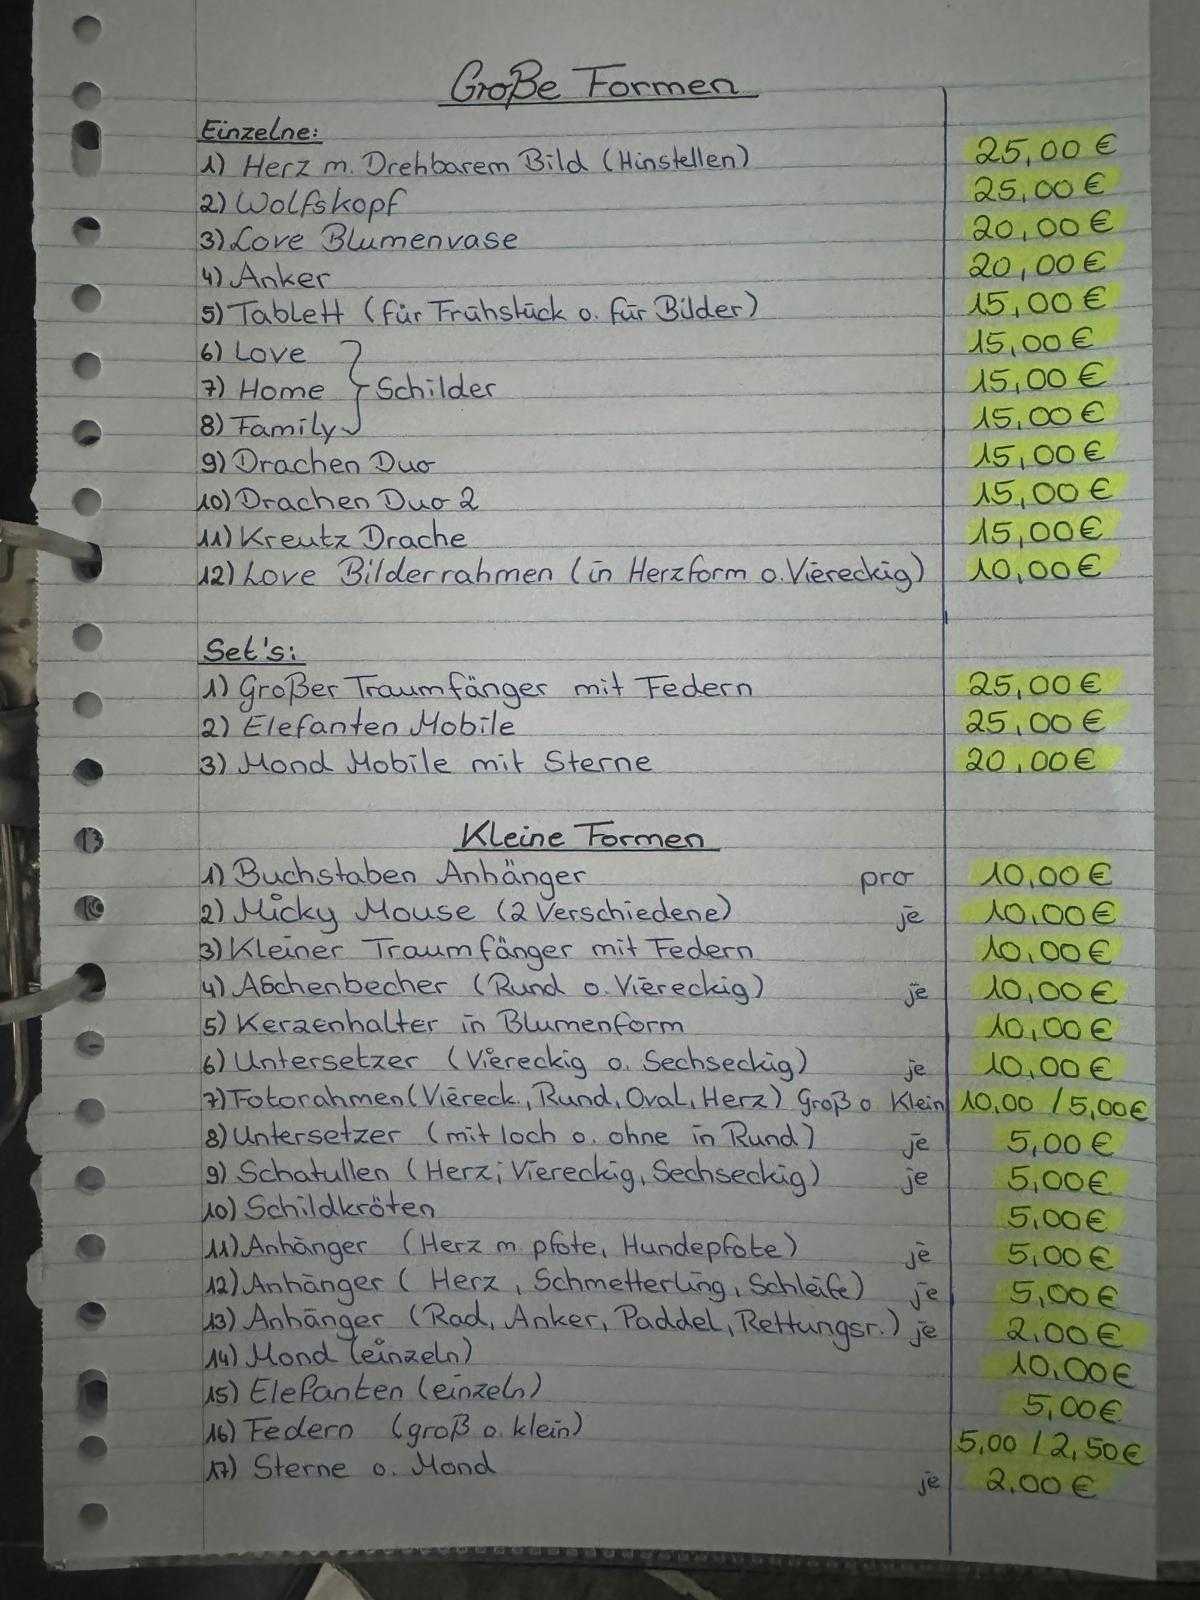 Große Formen
Einzelne:
1) Herz m. Drehbarem Bild (Hinstellen) 25,00 €
2) Wolfskopf 25,00 €
3) Love Blumenvase 20,00 €
4) Anker 20,00 €
5) Tablett (für Frühstück o. für Bilder) 15,00 €
6) Love 15,00 €
7) Home } Schilder 15,00 €
8) Family 15,00 €
9) Drachen Duo 15,00 €
10) Drachen Duo 2 15,00 €
11) Kreutz Drache 15,00 €
12) Love Bilderrahmen (in Herzform o. Viereckig) 10,00 €
Set's:
1) Großer Traumfänger mit Federn 25,00 €
2) Elefanten Mobile 25,00 €
3) Mond Mobile mit Sterne 20,00 €
Kleine Formen
1) Buchstaben Anhänger pro 10,00 €
2) Micky Mouse (2 Verschiedene) je 10,00 €
3) Kleiner Traumfänger mit Federn 10,00 €
4) Aschenbecher (Rund o. Viereckig) je 10,00 €
5) Kerzenhalter in Blumenform 10,00 €
6) Untersetzer (Viereckig o. Sechseckig) je 10,00 €
7) Fotorahmen (Viereck., Rund, Oval, Herz) Groß o Klein 10,00 / 5,00 €
8) Untersetzer (mit loch o. ohne in Rund) je 5,00 €
9) Schatullen (Herz; Viereckig, Sechseckig) je 5,00 €
10) Schildkröten 5,00 €
11) Anhänger (Herz m. pfote, Hundepfote) je 5,00 €
12) Anhänger (Herz, Schmetterling, Schleife) je 5,00 €
13) Anhänger (Rad, Anker, Paddel, Rettungsr.) je 2,00 €
14) Mond (einzeln) 10,00 €
15) Elefanten (einzeln) 5,00 €
16) Federn (groß o. klein) 5,00 / 2,50 €
17) Sterne o. Mond je 2,00 €